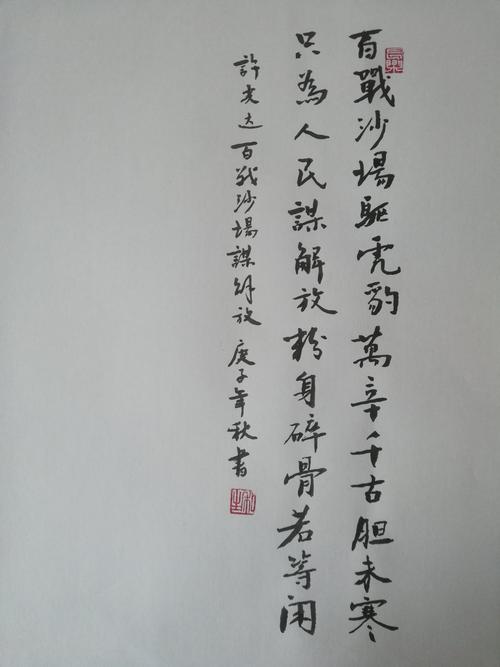 百戰沙場驅虎豹萬辛千古胆未寒
只為人民謀解放粉身碎骨若等闲
許光达百战沙場謀解放 庚子年秋書